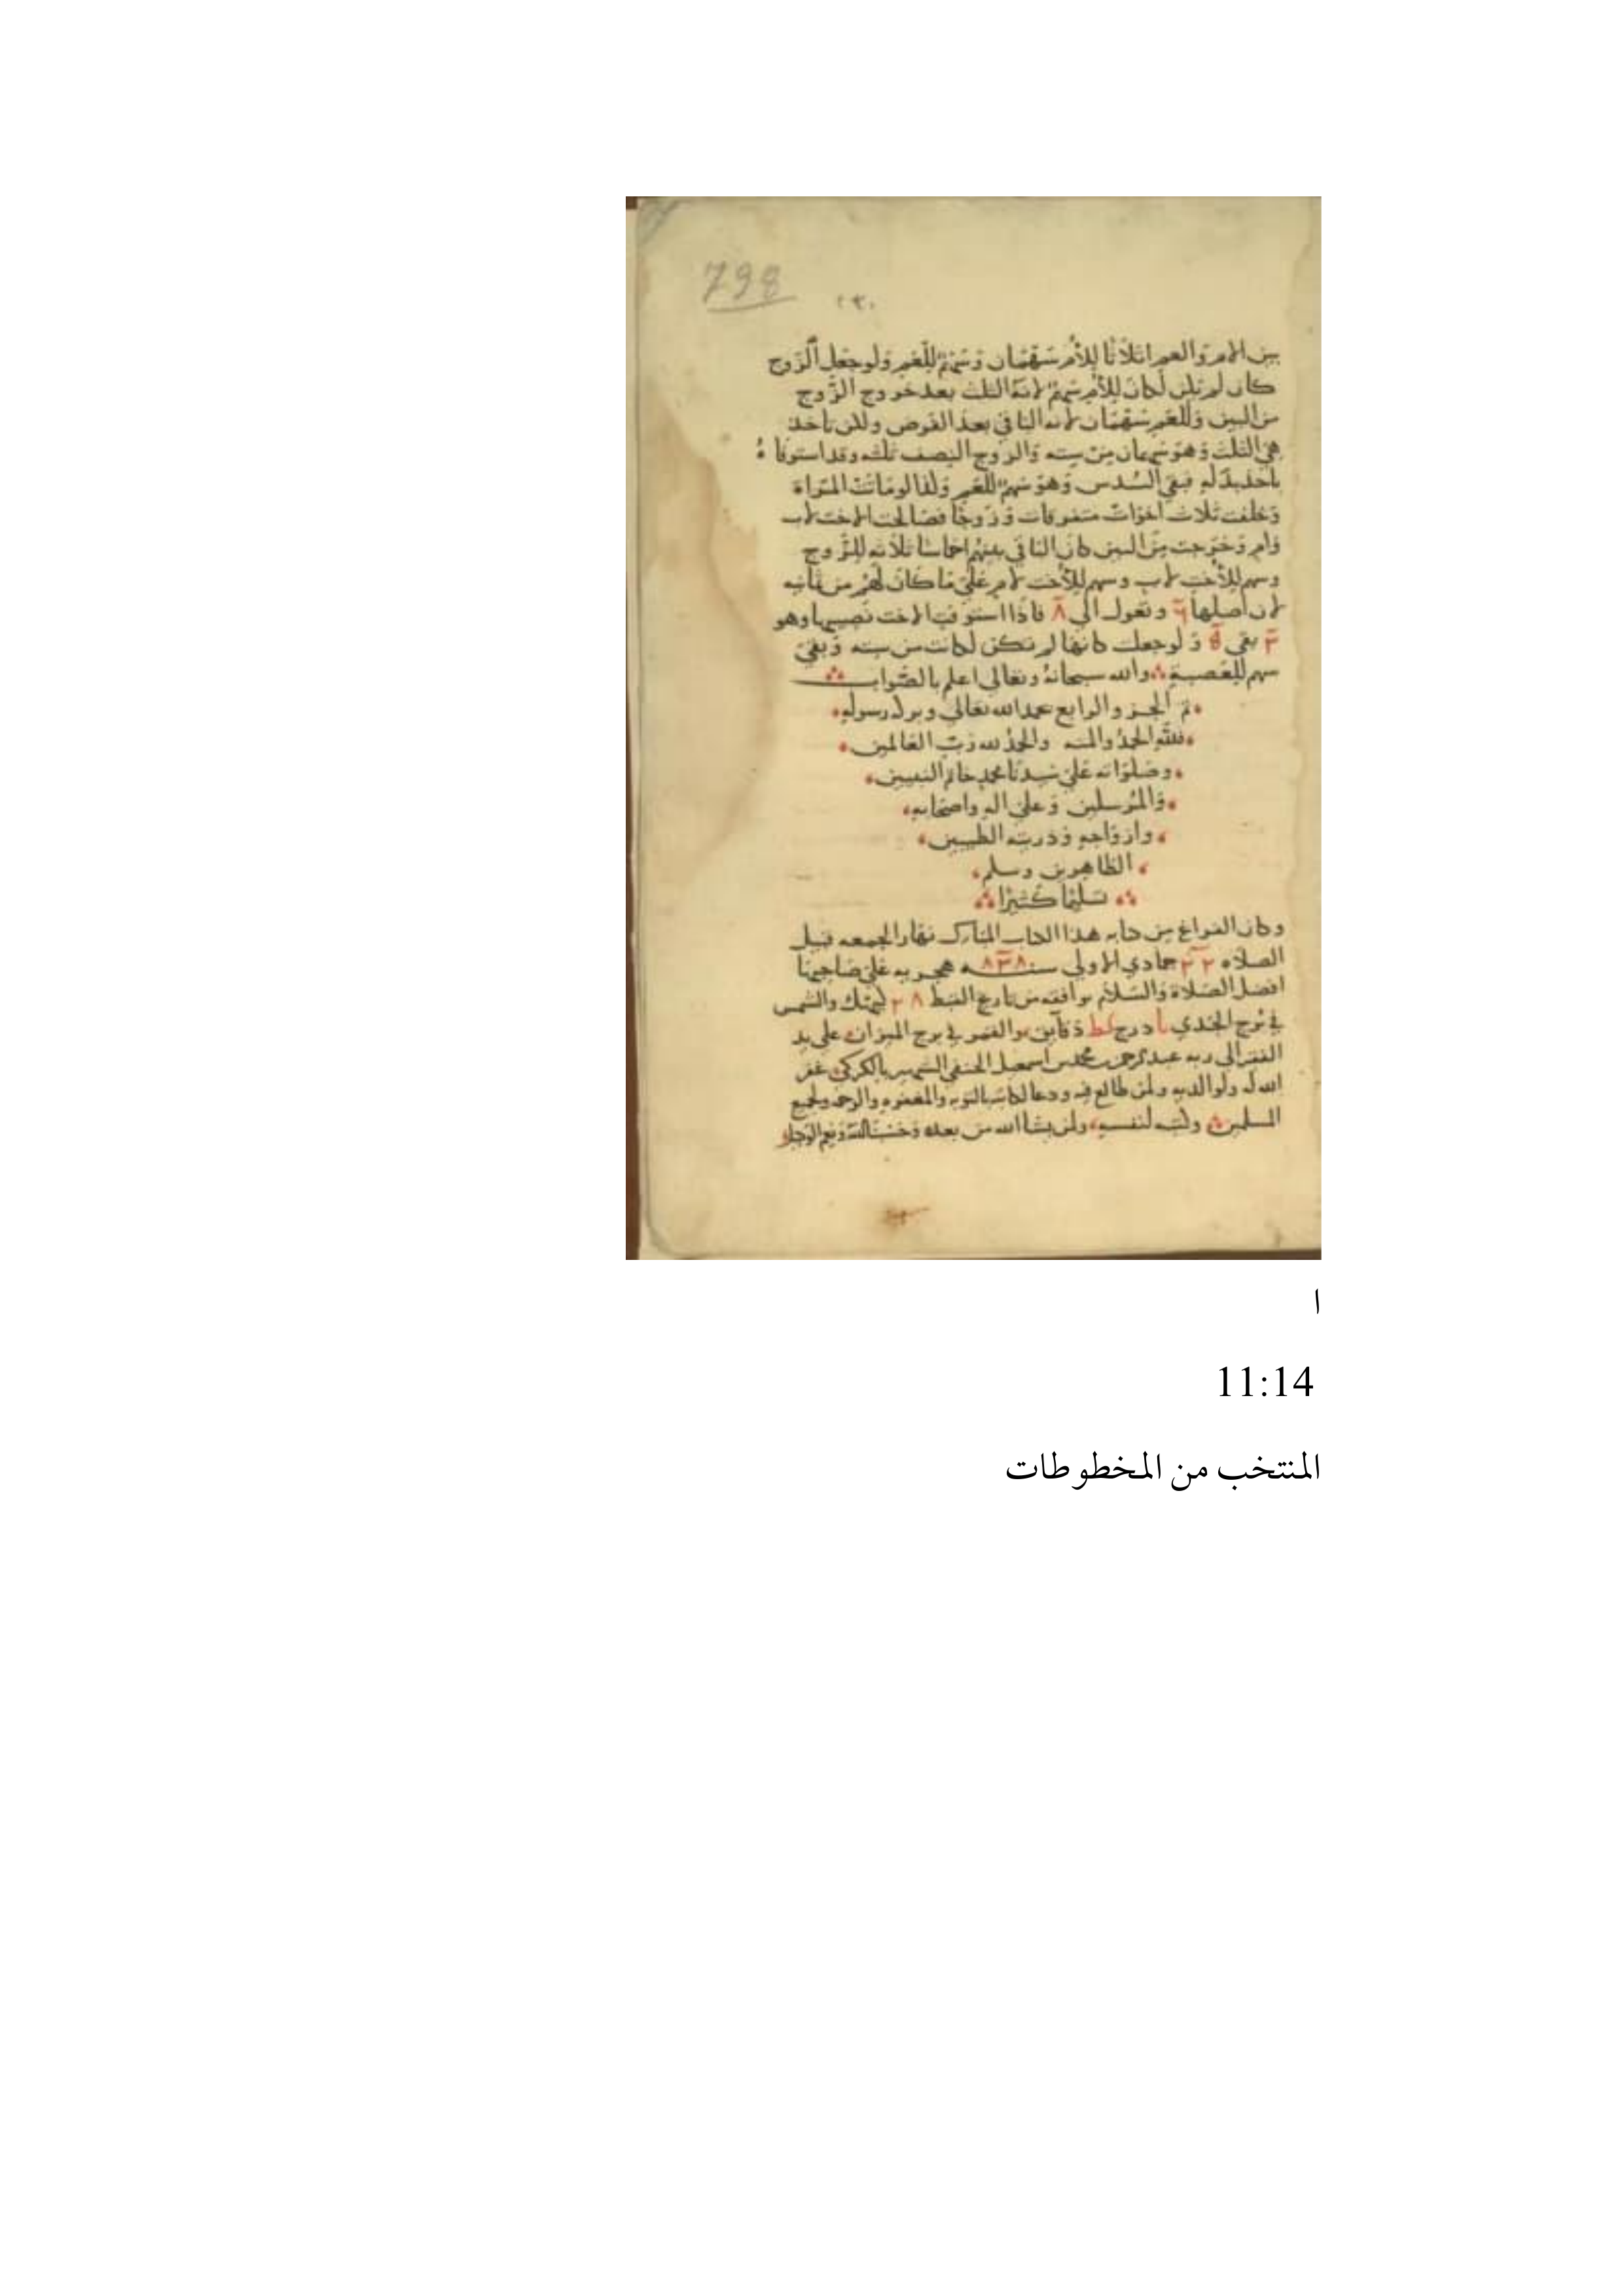 798
٢٣٠
بين الام والعم اثلاثا للأم سهمان وسهم للعم ولو جعل الزوج
كان لم يكن لكان للأم سهم لانه الثلث بعد خروج الزوج
من البين وللعم سهمان لانه الباقي بعد الفرض ولكن تاخذ
هي الثلث وهو سهمان من سته والزوج النصف ثلثه وقد استوفاه
باخذ بدله فبقي السدس وهو سهم للعم وكذا لو ماتت المراة
وخلفت ثلاث اخوات متفرقات وزوجا فصالحت الاخت لاب
وام وخرجت من البين كان الباقي بينهم اخماسا ثلاثه للزوج
وسهم للأخت لاب وسهم للأخت لام على ما كان لهم من ثمانيه
لان اصلها ٦ وتعول الى ٨ فاذا استوفت الاخت نصيبها وهو
٣ بقي ٥ ولو جعلت كانها لم تكن لكانت من سته وبقي
سهم للعصبة والله سبحانه وتعالى اعلم بالصواب
تم الجزو الرابع بحمد الله تعالى وبركة رسوله
فلله الحمد والمنه والحمد لله رب العالمين
وصلواته على سيدنا محمد خاتم النبيين
والمرسلين وعلى اله واصحابه
وازواجه وذريته الطيبين
الطاهرين وسلم
تسليما كثيرا
وكان الفراغ من كتابه هذا الكتاب المبارك نهار الجمعه قبيل
الصلاه ٢٢ جمادي الاولى سنه ٨٣٨ هجريه على صاحبها
افضل الصلاة والسلام موافقه من تاريخ القبط ٢٨ كيهك والشمس
في برج الجدي يا درج لط دقايق والقمر في برج الميزان على يد
الفقير الى ربه عبد الرحمن بن محمد بن اسمعيل الحنفي الشهير بالكركي غفر
الله له ولوالديه ولمن طالع فيه ودعا لكاتبه بالتوبه والمغفره والرحمه ولجميع
المسلمين وكتبه لنفسه ولمن يشا الله من بعده وحسبنا الله ونعم الوكيل
ا
11:14
المنتخب من المخطوطات